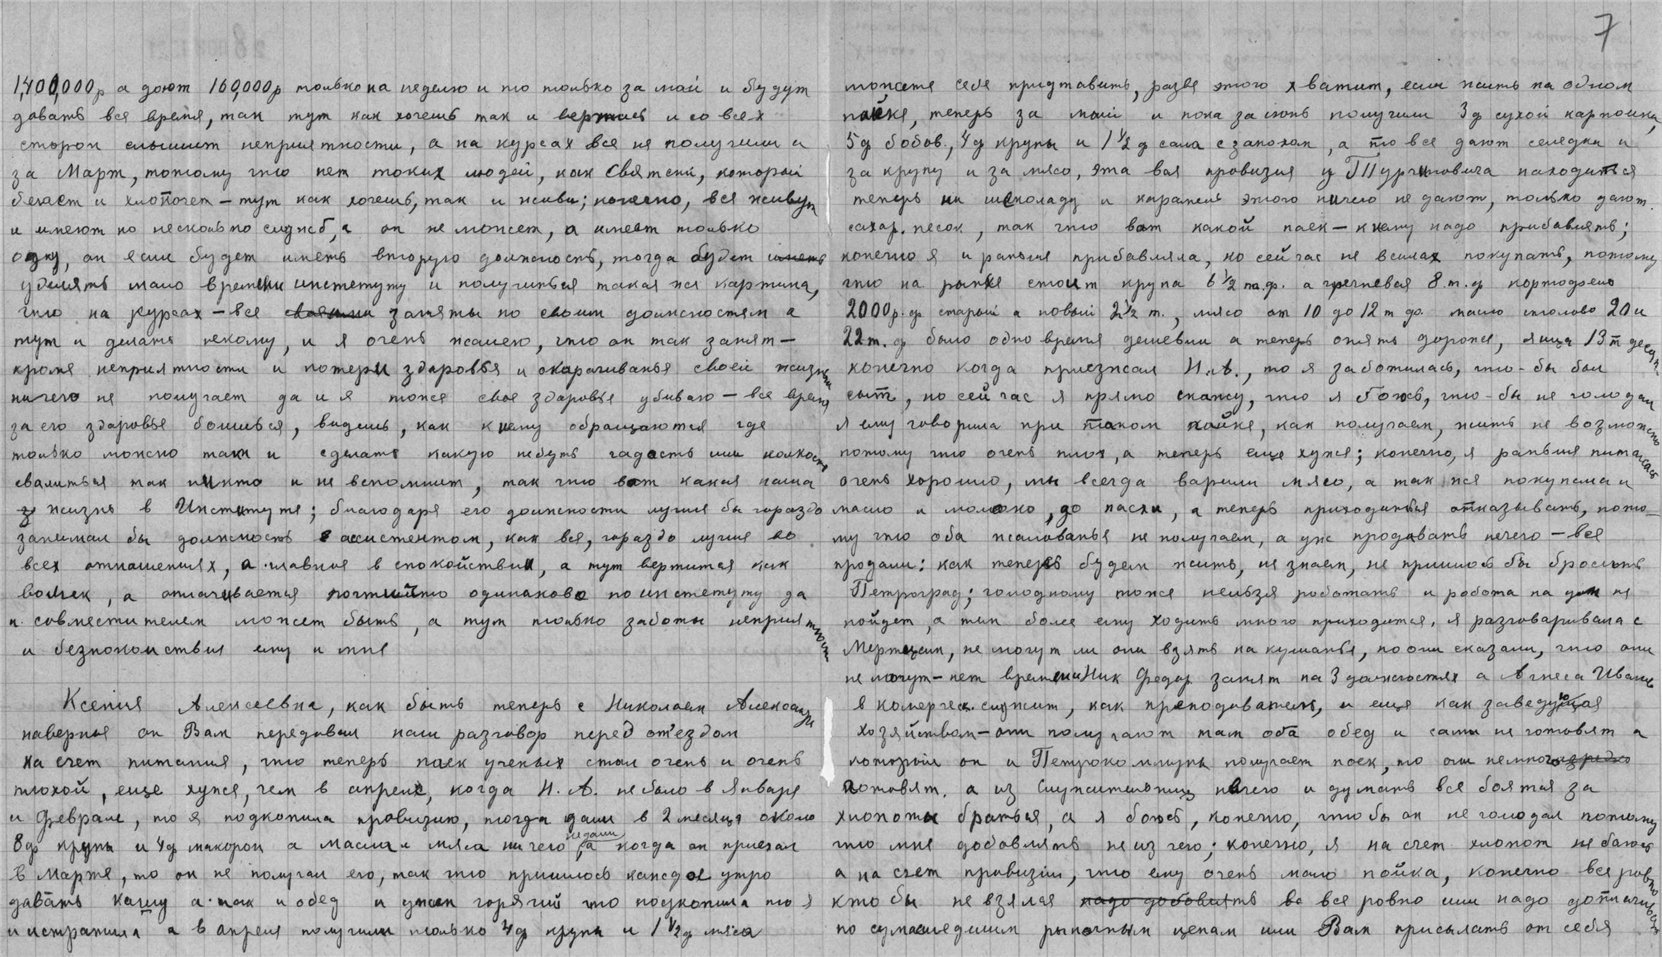 1,400,000р а дают 160,000р только на неделю и то только за май и будут
давать все время, так тут как хочешь так и вертись и со всех
сторон слышит неприятности, а на курсах все не получили и
за Март, потому что нет таких людей, как Святский, который
бегает и хлопочет – тут как хочешь, так и живи; конечно, все живут
и имеют по несколько служб, а он не может, а имеет только
одну, он если будет иметь вторую должность, тогда будет иметь
уделять мало времени институту и получиться такая же картина,
что на курсах – все заняты по своим должностям а
тут и делать некому, и я очень жалею, что он так занят –
кроме неприятности и потери здоровья и окарачиванья своей жизни
ничего не получает да и я тоже свое здоровье убиваю – все время
за его здоровье боишься, видишь, как к нему обращаются где
только можно так и сделать какую небуть гадость или колкость
свалиться так никто и не вспомнит, так что вот какая наша
жизнь в Институте; благодаря его должности лучше бы гораздо
занимал бы должность ассистентом, как все, гораздо лучше во
всех отношениях, а главное в спокойствии, а тут вертится как
волчек, а оплачивается одинаково по институту да
и совместителем может быть, а тут только заботы неприятности
и безпокойствия ему и мне
Ксения Алексеевна, как быть теперь с Николаем Александр
наверное он Вам передавал наш разговор перед от'ездом
на счет питания, что теперь паек ученых стал очень и очень
плохой, еще хуже, чем в апреле, когда Н. А. не было в Январе
и Феврале, то я подкопила провизию, тогда дали в 2 месяца около
8ф крупы и 4ф макарон а масла и мяса ничего не дали, а когда он приехал
в Марте, то он не получал его, так что пришлось каждое утро
давать кашу а так и обед и ужин горячий что подкопила то я
и истратила а в апреле получили только 4ф крупы и 1 1/2ф мяса
7
можете себе придставить, разве этого хватит, если жить на одном
пайке, теперь за май и пока за июнь получили 3ф сухой картошки,
5ф бобов, 4ф крупы и 1 1/2ф сала с запахом, а то все дают селедки и
за крупу и за мясо, эта вся провизия у находится
теперь ни шеколаду и карамель этого ничего не дают, только дают
сахар. песок, так что вот какой паек – к нему надо прибавлять;
конечно я и раньше прибавляла, но сейчас не в силах покупать, потому
что на рынке стоит крупа 6 1/2 т.ф. а гречневая 8.т.ф картофель
2000р.ф. старый а новый 3 1/2 т., мясо от 10 до 12 т до масло столово 20 и
22т.ф было одно время дешевли а теперь опять дороже, яица 13т десят.
конечно когда приезжал Н.А., то я заботилась, что-бы был
сыт, но сейчас я прямо скажу, что я боюсь, что-бы не голодал
я ему говорила при таком пайке, как получаем, жить не возможно
потому что очень плох, а теперь еще хуже; конечно, я раньше питалась
очень хорошо, мы всегда варили мясо, а так же покупали и
масло и молоко, до пасхи, а теперь приходиться отказывать, пото–
му что оба жалованья не получаем, а уж продавать нечего – все
продали: как теперь будем жить, не знаем, не пришлось бы бросить
Петроград; голодному тоже нельзя работать и работа на ум не
пойдет, а тем более ему ходить много приходится. я разговаривала с
Мертцами, не могут ли они взять на кушанье, но они сказали, что они
не могут – нет времени Ник Федор занят на 3 должностях а Агнеса Иванов
в комерчес. служит, как преподаватель, и еще как заведующая
хозяйством – они получают там оба обед и сами не готовят а
который он и Петрокоммуны получает паек, то они немного
готовят. а из Служительниц нечего и думать все боятся за
хлопоты браться, а я боюсь, конечно, что бы он не голодал потому
что мне добовлять не из чего; конечно, я на счет хлопот не боюсь
а на счет провизии, что ему очень мало пойка, конечно все ровно
кто бы не взялся надо добовлять все ровно или надо доплачивать
по сумашедшим рыночным ценам или Вам присылать от себя